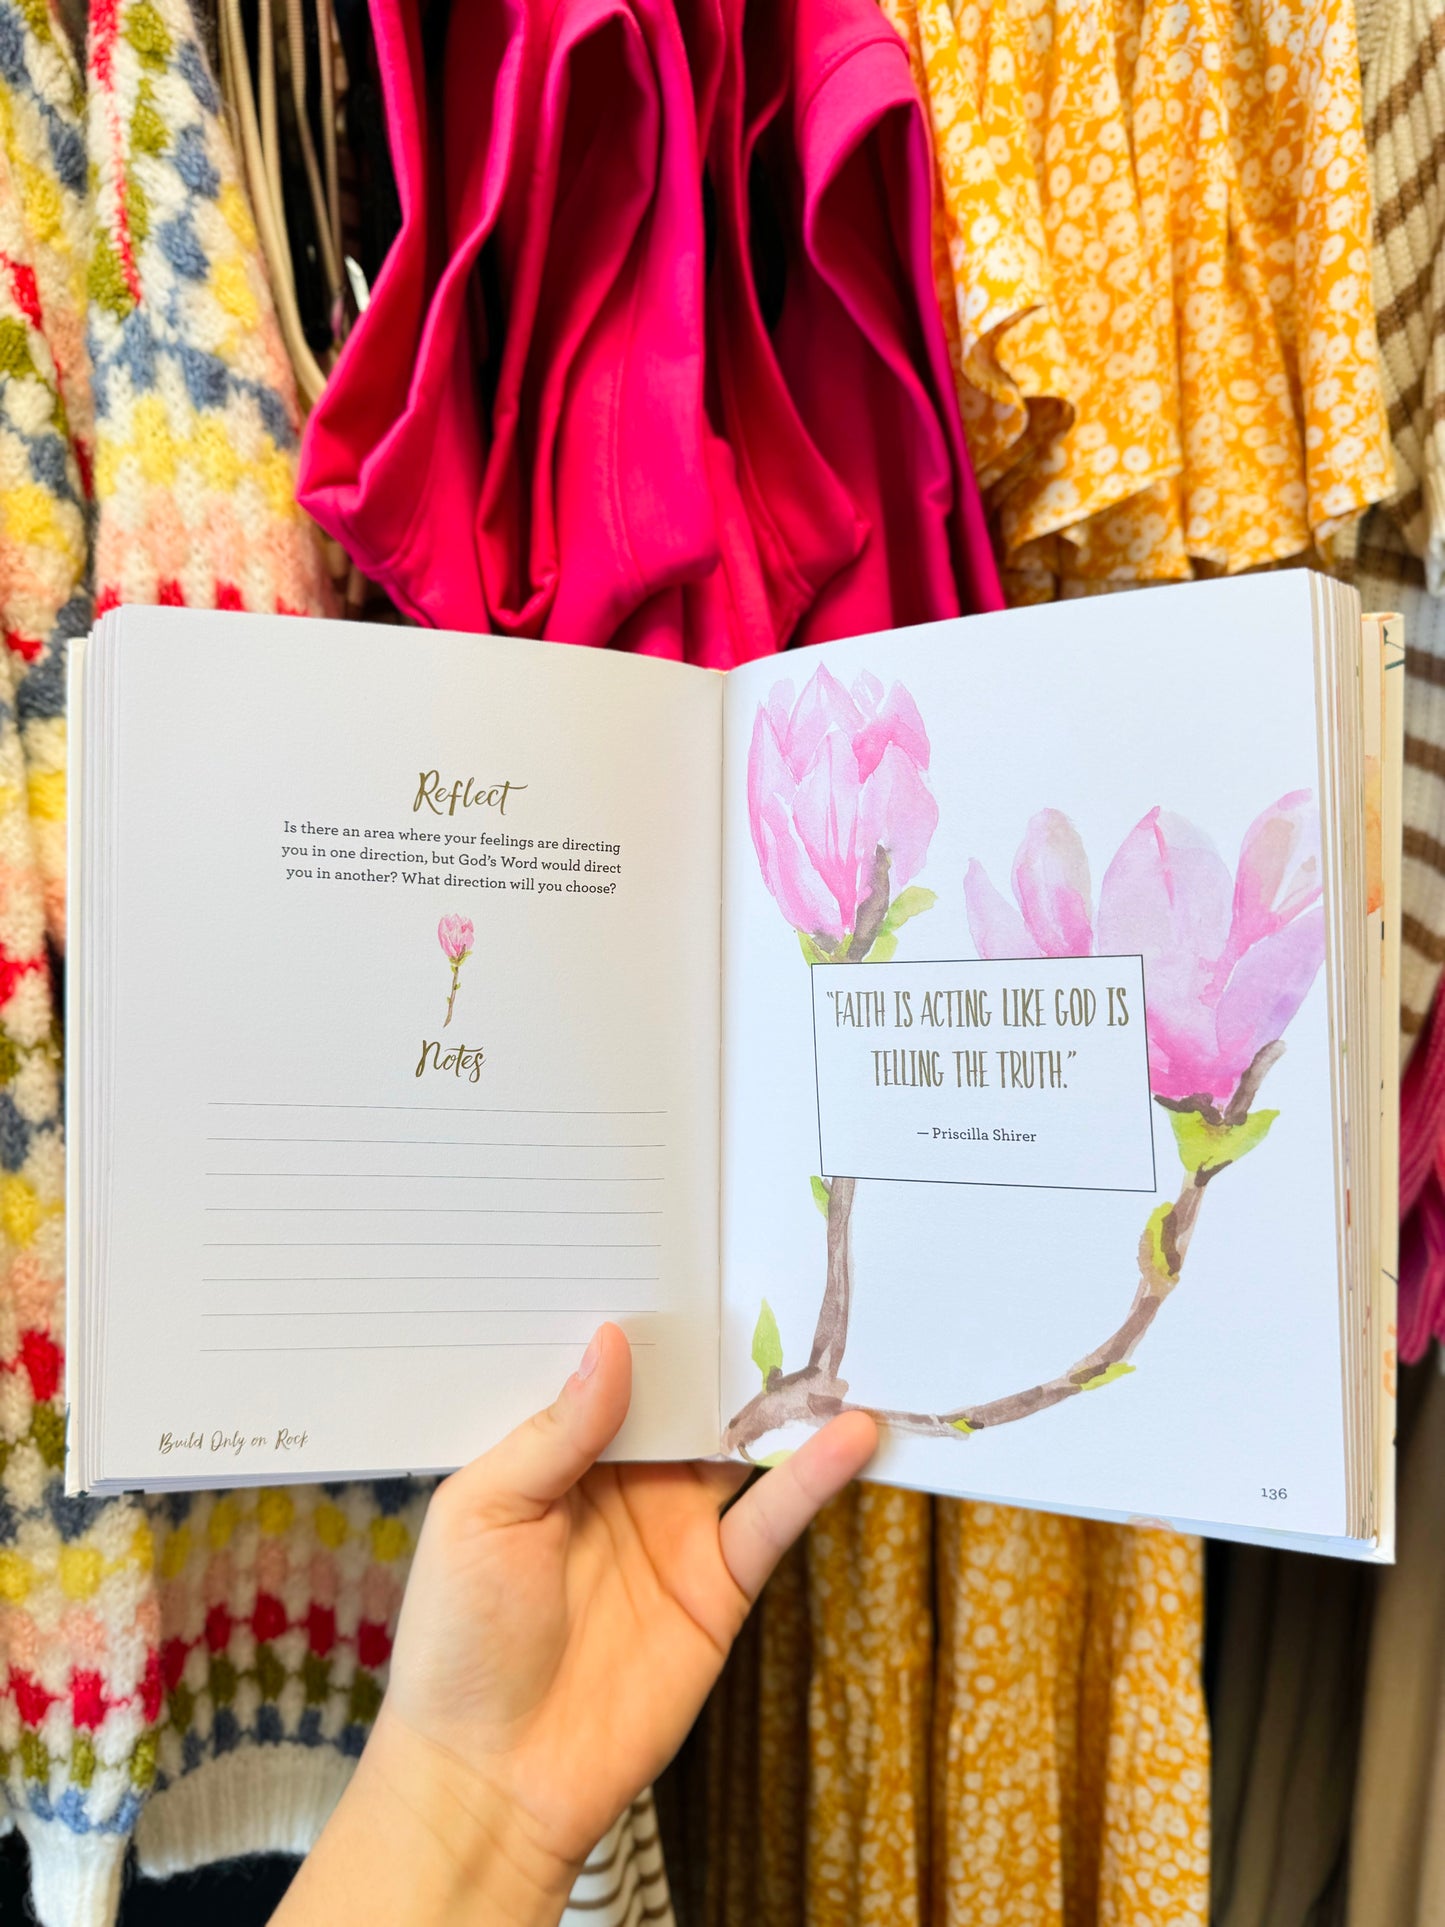 Reflect
Is there an area where your feelings are directing
you in one direction, but God's Word would direct
you in another? What direction will you choose?
Notes
Build Only on Rock
"FAITH IS ACTING LIKE GOD IS
TELLING THE TRUTH."
— Priscilla Shirer
136